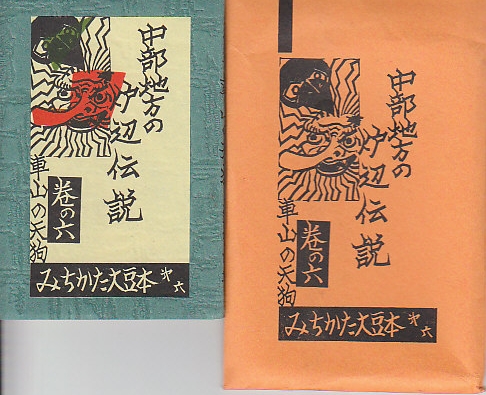 中部地方の
炉辺伝説
巻の六
車山の天狗
みちかた大豆本 才六
中部地方の
炉辺伝説
巻の六
車山の天狗
みちかた大豆本 才六